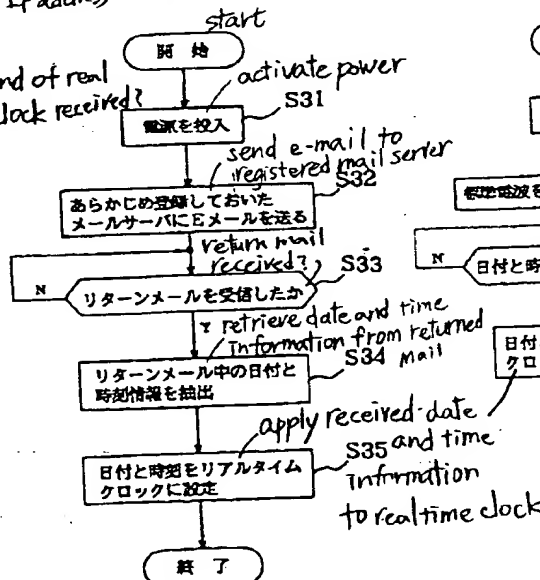 start
開 始
nd of real
lock received?
activate power
S31
電源を投入
send e-mail to
registered mail server
S32
あらかじめ登録しておいた
メールサーバにEメールを送る
return mail
received?
S33
N
リターンメールを受信したか
Y
retrieve date and time
information from returned
mail
S34
リターンメール中の日付と
時刻情報を抽出
apply received date
and time
information
to realtime clock
S35
日付と時刻をリアルタイム
クロックに設定
終 了
N
日付と時
日付
クロ